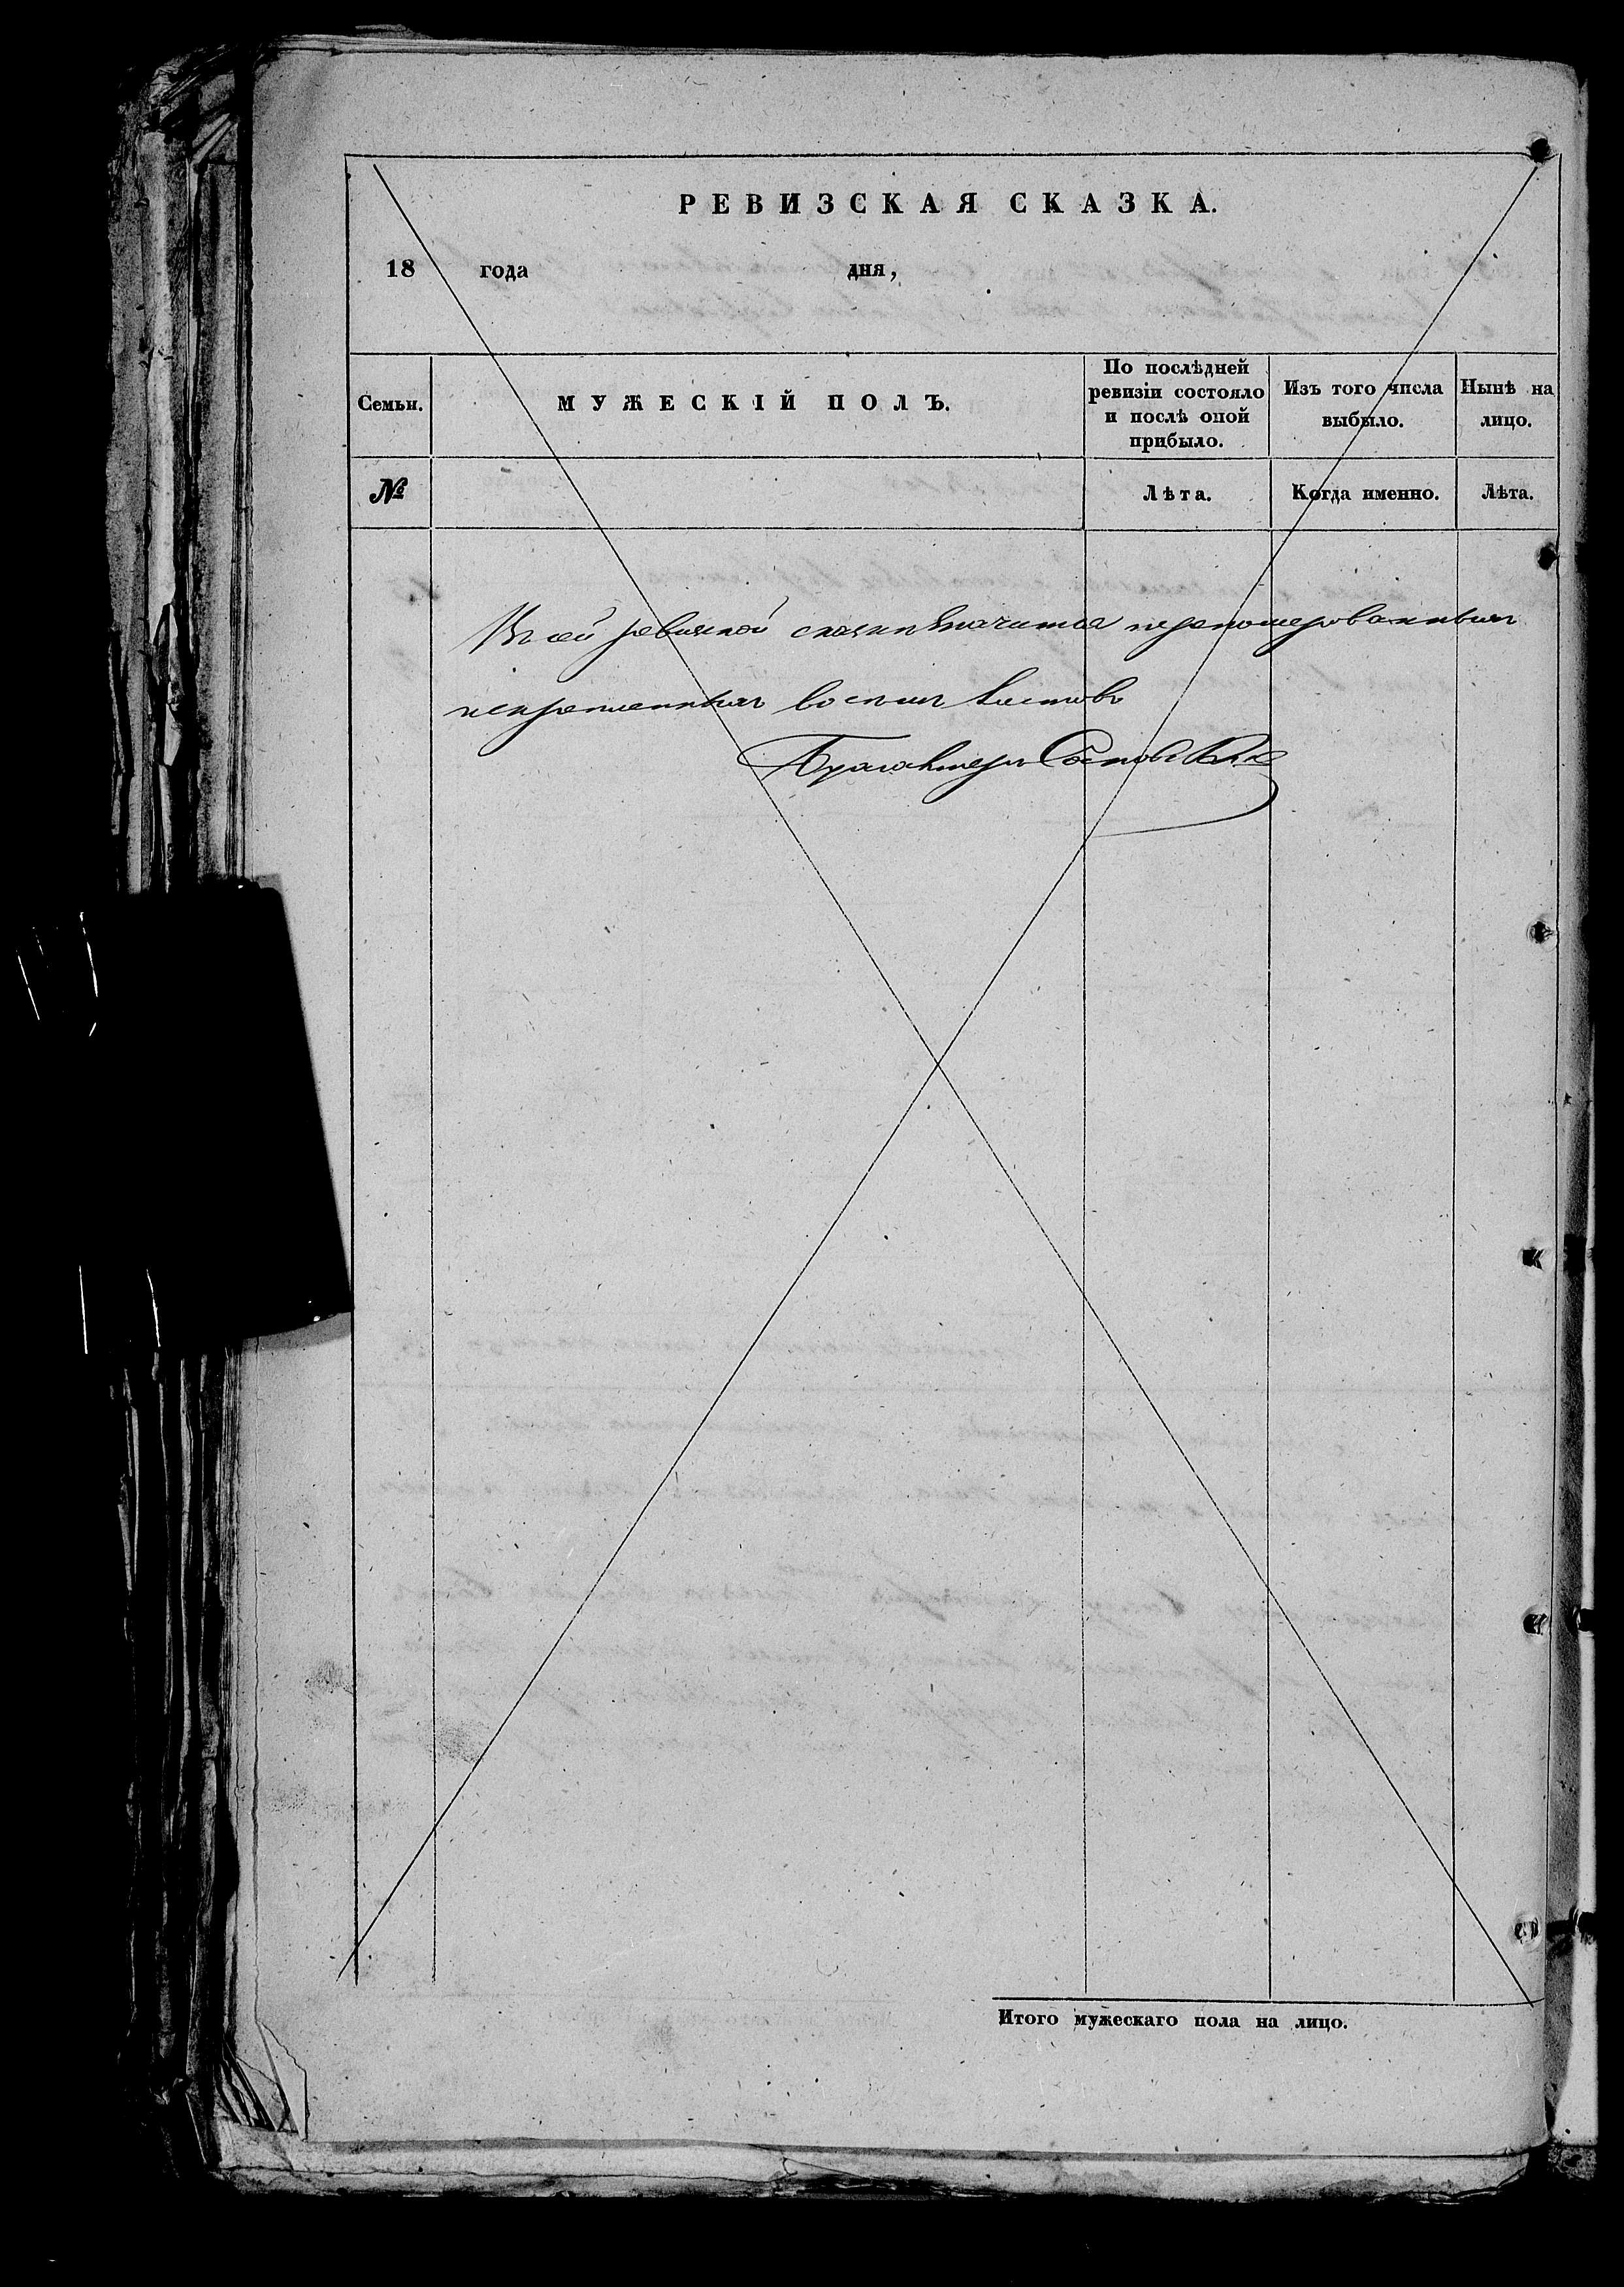 РЕВИЗСКАЯ СКАЗКА.
18 года дня,
Семьи.
МУЖЕСКІЙ ПОЛЪ.
По послѣдней
ревизіи состояло
и послѣ оной
прибыло.
Изъ того числа
выбыло.
Нынѣ на
лицо.
№
Лѣта.
Когда именно.
Лѣта.
В сей ревиской сказки значится перономерованныхъ
искрепленныхъ восемь листовъ
Бухгалтеръ
Итого мужескаго пола на лицо.